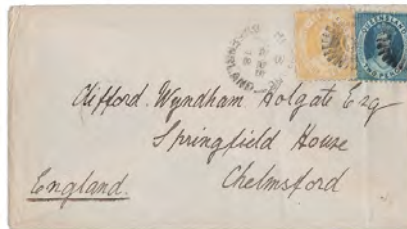 QUEENSLAND
Clifford. Wyndham Holgate Esq
Springfield House
Chelmsford
England.